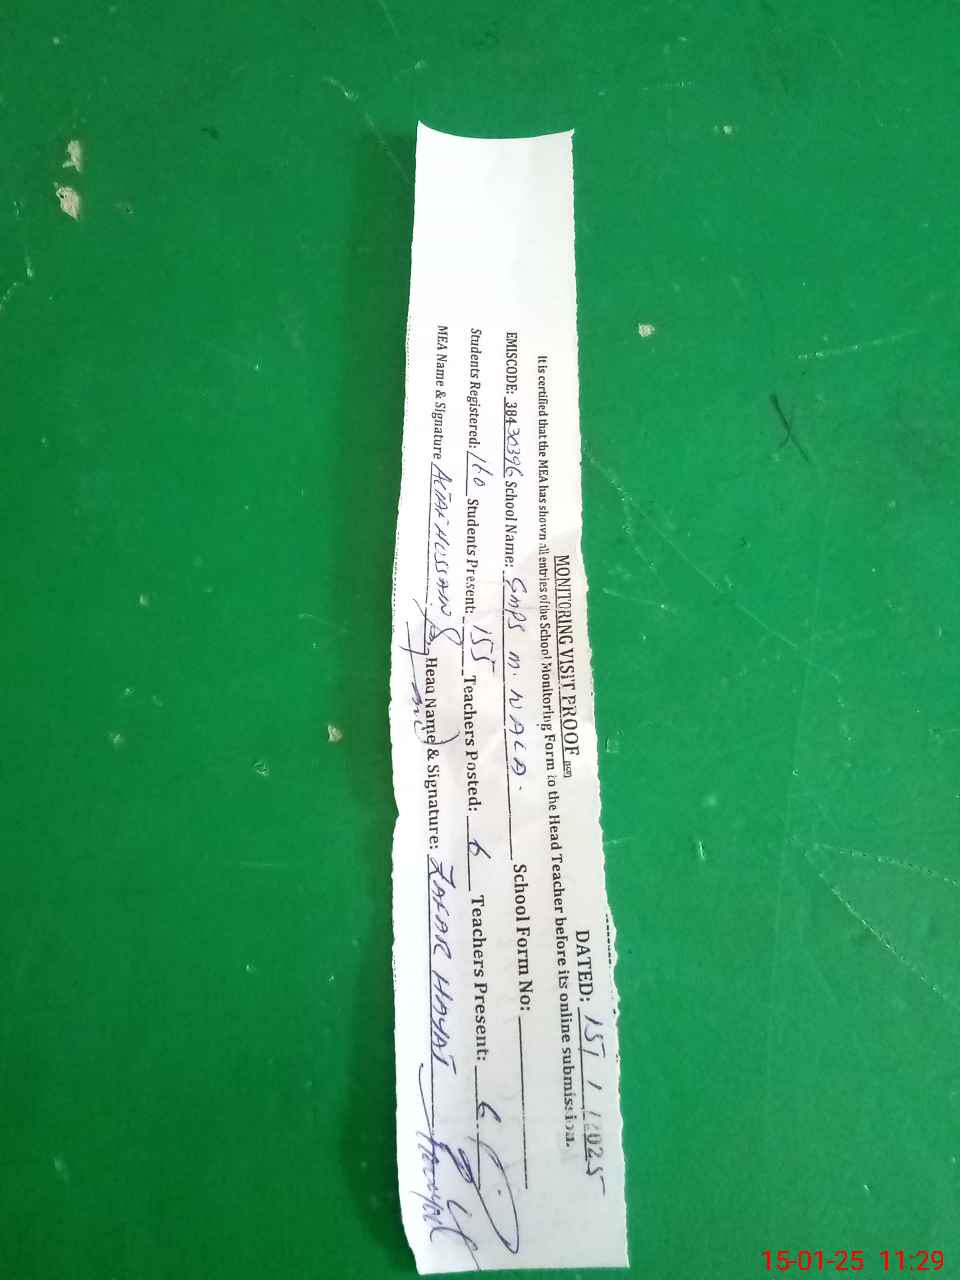 MONITORING VISIT PROOF (SCP) DATED: 15/1/2025
It is certified that the MEA has shown all entries of the School Monitoring Form to the Head Teacher before its online submission.
EMISCODE: 38430396 School Name: GMPS M. NALA. School Form No:
Students Registered: 160 Students Present: 155 Teachers Posted: 6 Teachers Present: 6
MEA Name & Signature ALTAF HUSSAIN Head Name & Signature: ZAFAR HAYAT
15-01-25 11:29